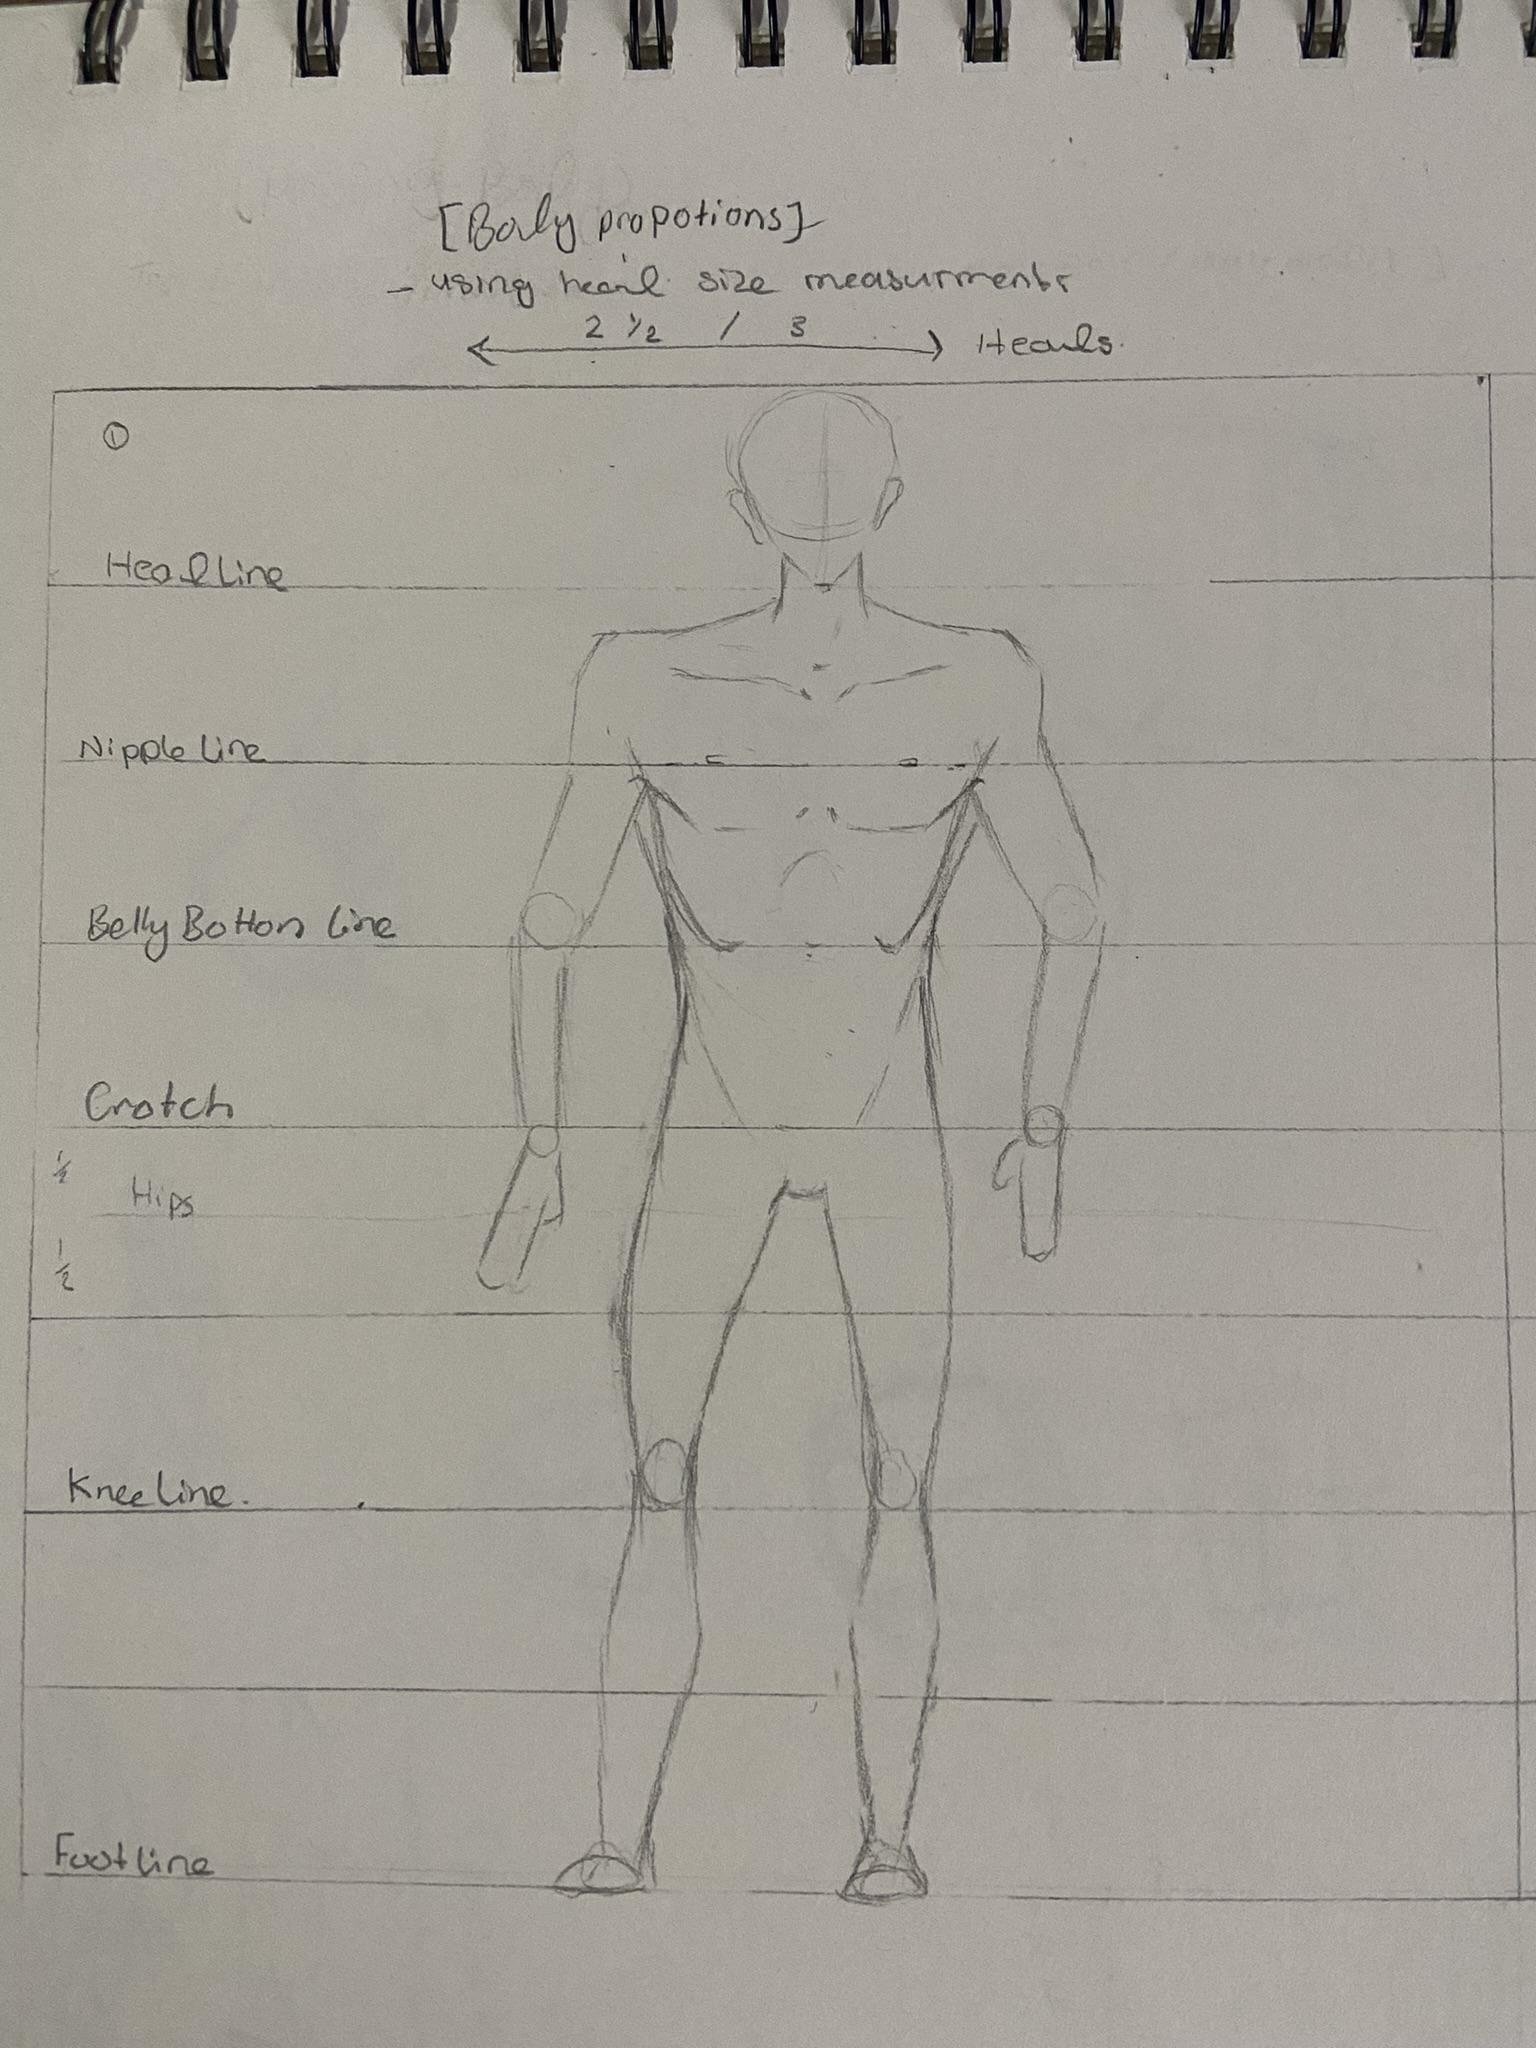 [Body propotions]
- using head size measurments
2 1/2 / 3 Heads.
①
Head Line
Nipple Line
Belly Button line
Crotch
1/2
Hips
1/2
Knee Line.
Foot line